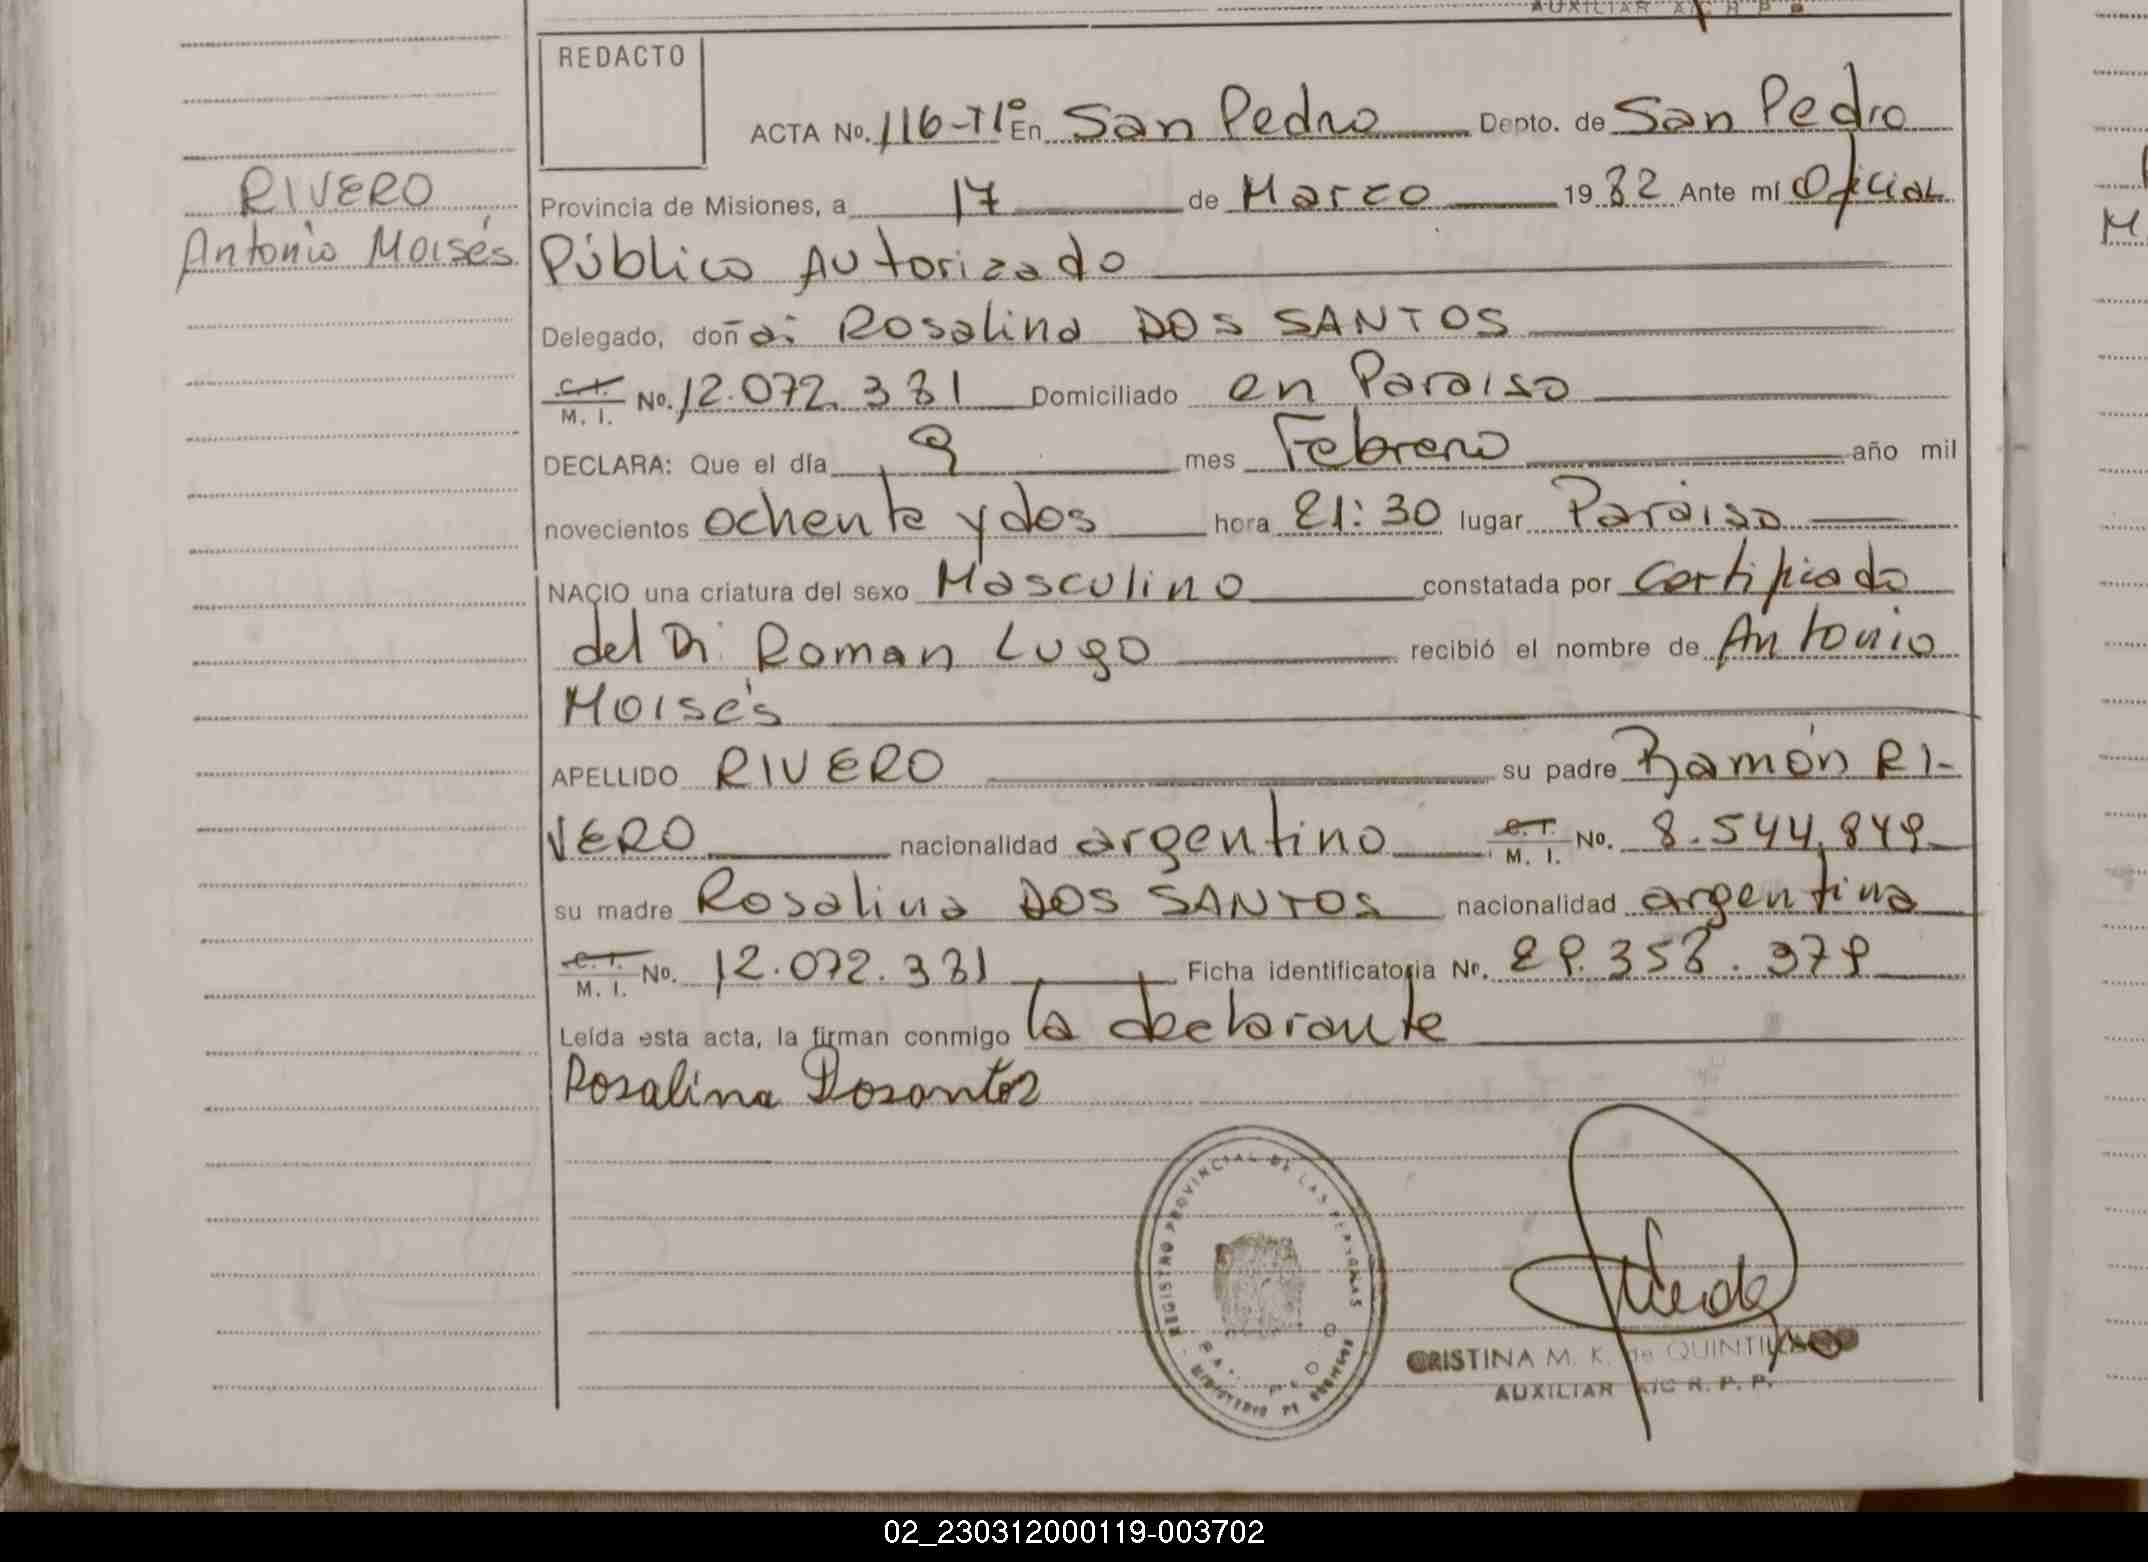 AUXILIAR A/C R. P. P.
REDACTO
ACTA No. 116-TIº En San Pedro Depto. de San Pedro
RIVERO
Antonio Moisés
Provincia de Misiones, a 17 de Marzo 1982 Ante mí Oficial
Público Autorizado
Delegado, doña: Rosalina DOS SANTOS
C.I.
M. I. No. 12.072.381 Domiciliado en Paraiso
DECLARA: Que el día 9 mes Febrero año mil
novecientos ochenta y dos hora 21:30 lugar Paraiso
NACIO una criatura del sexo Masculino constatada por Certificado
del Dr. Roman Lugo recibió el nombre de Antonio
Moisés
APELLIDO RIVERO su padre Ramón RI-
VERO nacionalidad argentino C.I. M. I. No. 8.544.849
su madre Rosalina DOS SANTOS nacionalidad argentina
C.I.
M. I. No. 12.072.381 Ficha identificatoria Nr. 29.358.379
Leída esta acta, la firman conmigo la declarante
Rosalina Dosantos
REGISTRO PROVINCIAL DE LAS PERSONAS
MINISTERIO DE GOBIERNO
CRISTINA M. K. de QUINTILIANO
AUXILIAR A/C R. P. P.
02_230312000119-003702